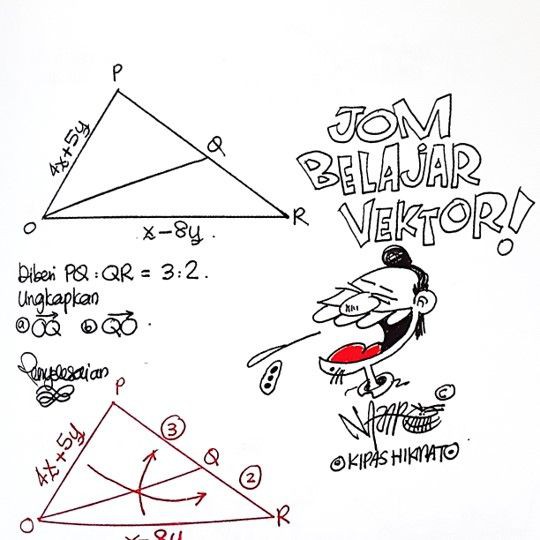 P
4x+5y
Q
O
R
x-8y.
JOM
BELAJAR
VEKTOR!
Diberi PQ:QR = 3:2.
Ungkapkan
ⓐ OQ→ ⓑ QO→.
Penyelesaian
P
4x+5y
③
Q
②
O
R
x-8y
©
©KIPASHIKMATO